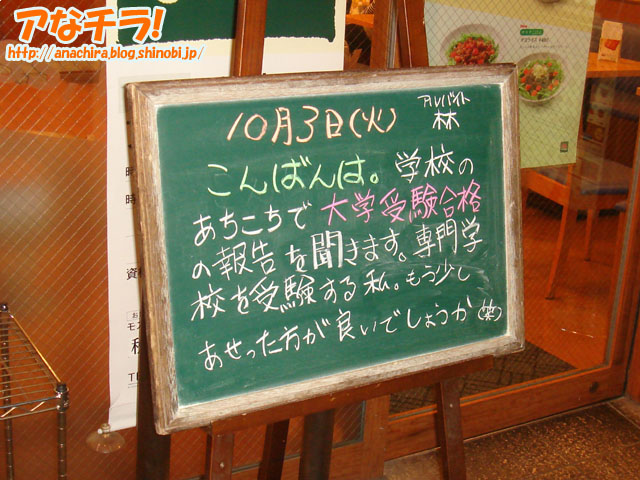 アなチラ!
http://anachira.blog.shinobi.jp/
10月3日(火)
アルバイト
林
こんばんは。学校の
あちこちで大学受験合格
の報告を聞きます。専門学
校を受験する私。もう少し
あせった方が良いでしょうか(笑)
時
時
資
モス